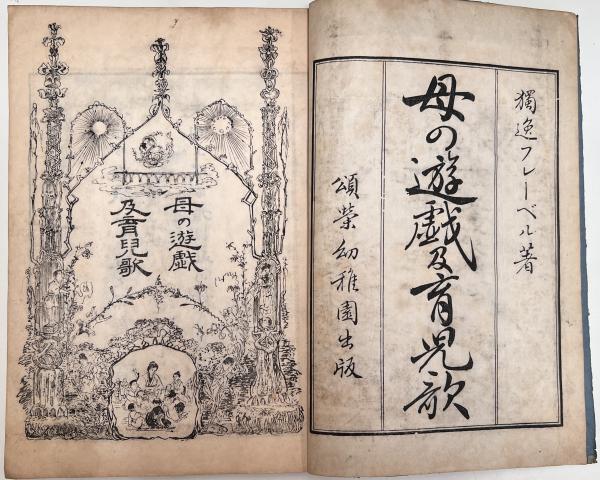 獨逸フレーベル著
母の遊戯及育児歌
頌榮幼稚園出版
母の遊戯
及育兒歌